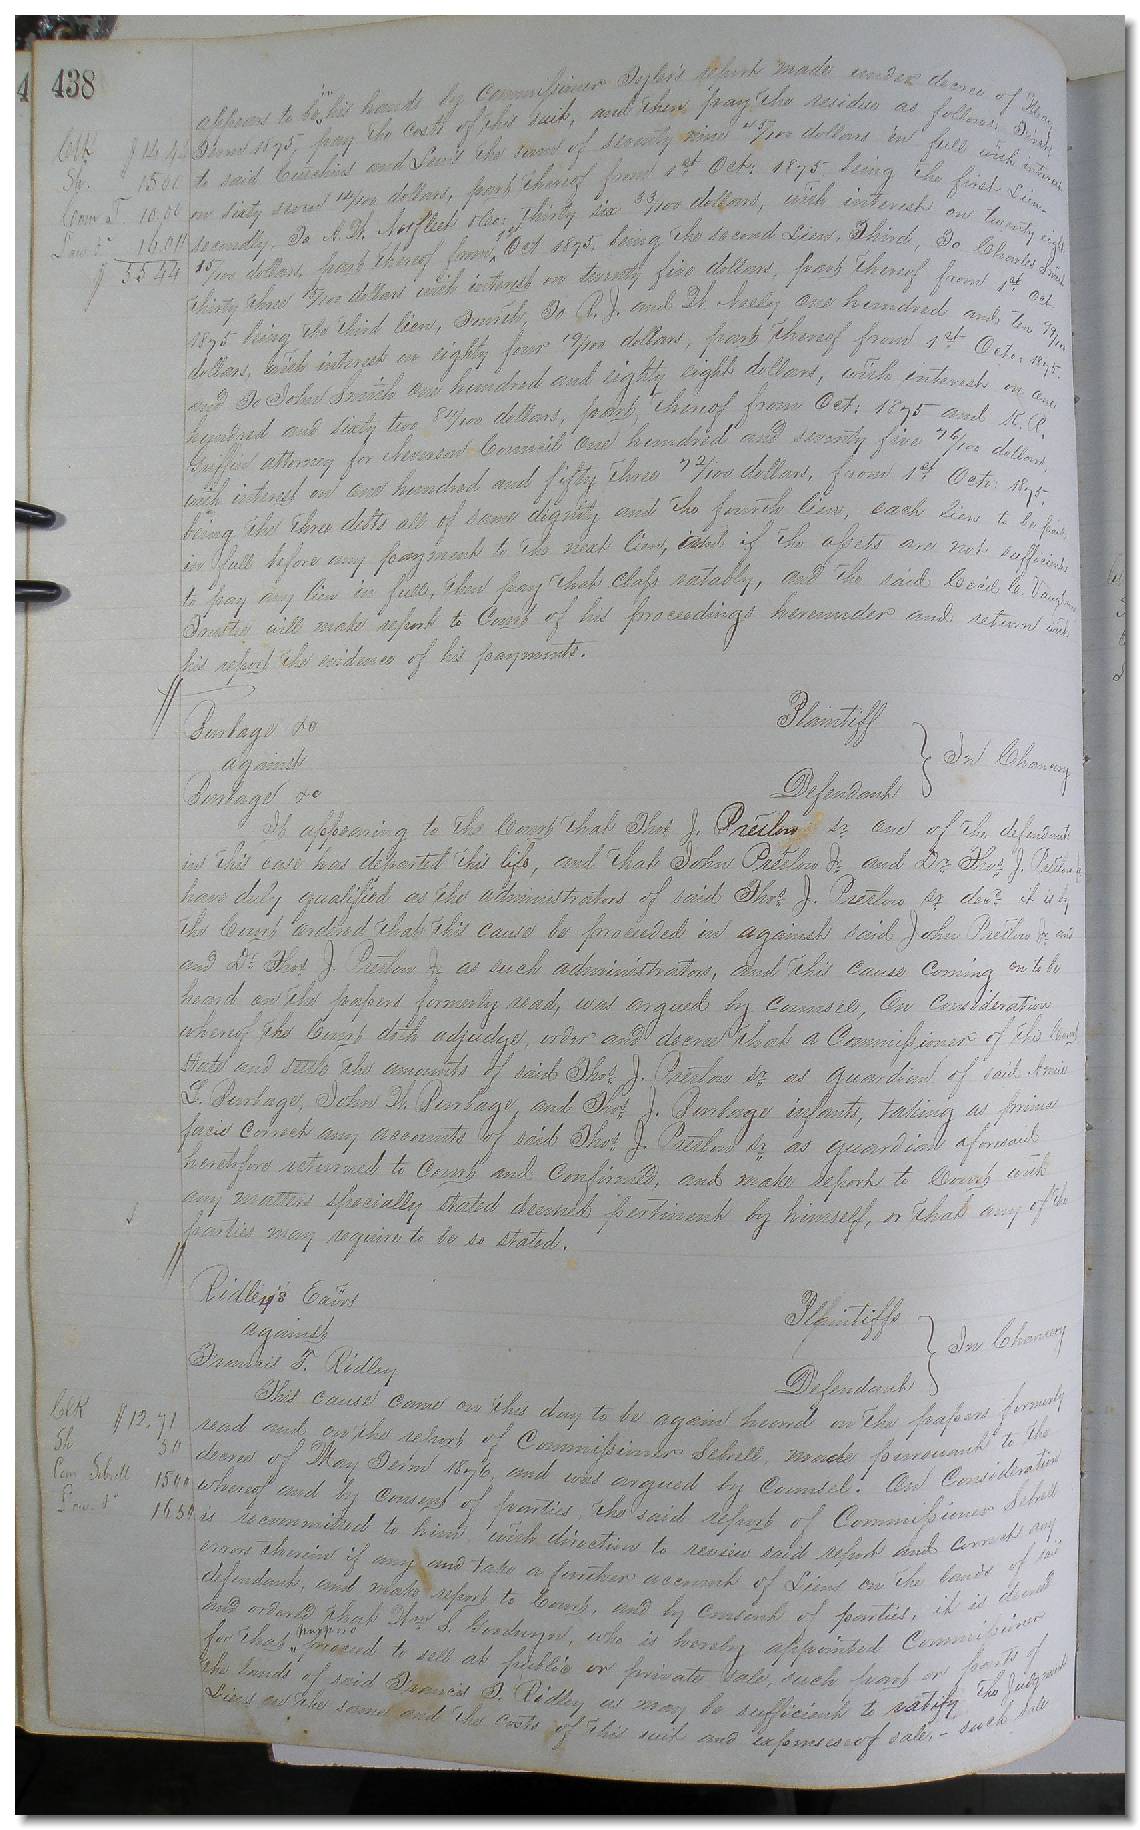 438
appears to be in his hands by Commissioner Tyler's report made under decree of May
Term 1875, pay the costs of this suit, and then pay the residue as follows, First,
to said Cutchins and Lewis the sum of seventy nine 45/100 dollars in full with interest
on sixty seven 12/100 dollars, part thereof from 1st Oct: 1875 being the first Lien.
secondly, To A. W. Norfleet &c: thirty six 33/100 dollars, with interest on twenty eight
15/100 dollars, part thereof from 1st Oct 1875. being the second Lien. Third, To Charles Smith
thirty three dollars with interest on twenty five dollars, part thereof from 1st Oct
1875 being the third lien, Fourth, To R. J. and W. Neely one hundred and ten 99/100
dollars, with interest on eighty four 19/100 dollars, part thereof from 1st Oct: 1875.
and To John Smith one hundred and eighty eight dollars, with interest on one
hundred and sixty two dollars, part thereof from Oct: 1875 and K. R.
Griffin attorney for Neverson Council one hundred and seventy five 76/100 dollars,
with interest on one hundred and fifty three 72/100 dollars, from 1st Oct: 1875.
being the three debts all of same dignity and the fourth lien, each lien to be paid
in full before any payment to the next lien, if the assets are not sufficient
to pay any lien in full, then pay that class ratably, and the said Cecil C. Vaughan
Trustee will make report to Court of his proceedings hereunder and return with
his report the evidence of his payments.
Clk $14.44
Sh. 15.00
Com T. 10.00
Law. 16.00
$ 55.44
Purbage &c Plaintiff
against In Chancery
Purbage &c Defendant
It appearing to the Court that Thos. J. Pretlow sr. one of the defendants
in this case has departed this life, and that John Pretlow Jr and Dr. Thos. J. Pretlow
have duly qualified as the administrators of said Thos. J. Pretlow sr. decd. it is by
the Court ordered that this cause be proceeded in against said John Pretlow Jr and
and Dr. Thos. J. Pretlow Jr as such administrators, and this cause coming on to be
heard on the papers formerly read, was argued by counsel, On Consideration
whereof the Court doth adjudge, order and decree that a Commissioner of this Court
State and settle the accounts of said Thos. J. Pretlow sr. as guardian of said Annie
L. Purbage, John W. Purbage, and Thos. J. Purbage infants, taking as prima
facie correct any accounts of said Thos. J. Pretlow sr. as guardian aforesaid
heretofore returned to Court and confirmed, and make report to Court with
any matters specially stated deemed pertinent by himself, or that any of the
parties may require to be so stated.
Ridley's Exors Plaintiffs
against In Chancery
Francis T. Ridley Defendant
This cause came on this day to be again heard on the papers formerly
read and on the report of Commissioner Sebrell, made pursuant to the
decree of May Term 1876, and was argued by counsel: On Consideration
whereof and by consent of parties, the said report of Commissioner Sebrell
is recommitted to him, with direction to review said report and correct any
errors therein if any and take a further account of Liens on the lands of said
defendant, and make report to Court, and by consent of parties, it is decreed
and ordered that Wm. S. Goodwyn, who is hereby appointed Commissioner
for that purpose proceed to sell at public or private sale, such part or parts of
the lands of said Francis T. Ridley as may be sufficient to satisfy the Judgment
Liens on the same and the costs of this suit and expenses of sale, – such sale
Clk $12.71
Sh 30
Com Sebrell 15.00
Law. 16.50